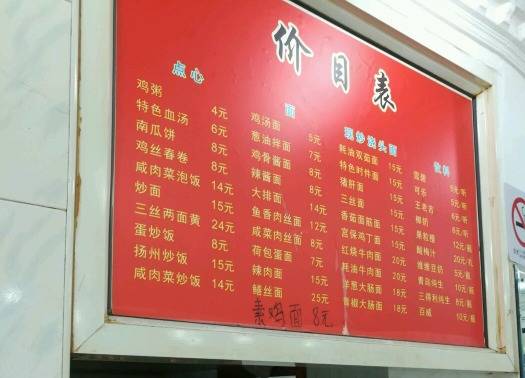 价目表
点心
鸡粥 4元
特色血汤 6元
南瓜饼 8元
鸡丝春卷 8元
咸肉菜泡饭 14元
炒面 15元
三丝两面黄 24元
蛋炒饭 8元
扬州炒饭 15元
咸肉菜炒饭 14元
面
鸡汤面 5元
葱油拌面 7元
鸡骨酱面 8元
辣酱面 8元
大排面 14元
鱼香肉丝面 12元
咸菜肉丝面 8元
荷包蛋面 7元
辣肉面 15元
鳝丝面 25元
素鸡面 8元
现炒浇头面
蚝油双菇面 15元
特色时件面 15元
猪肝面 15元
三丝面 15元
香菇面筋面 15元
宫保鸡丁面 15元
红烧牛肉面 20元
蚝油牛肉面 20元
洋葱大肠面 18元
青椒大肠面 18元
饮料
雪碧 5元/听
可乐 5元/听
王老吉 6元/听
椰奶 6元/听
果粒橙 12元/瓶
酸梅汁 20元/扎
维维豆奶 5元/瓶
青岛纯生 10元/瓶
三得利纯生 8元/瓶
百威 10元/瓶